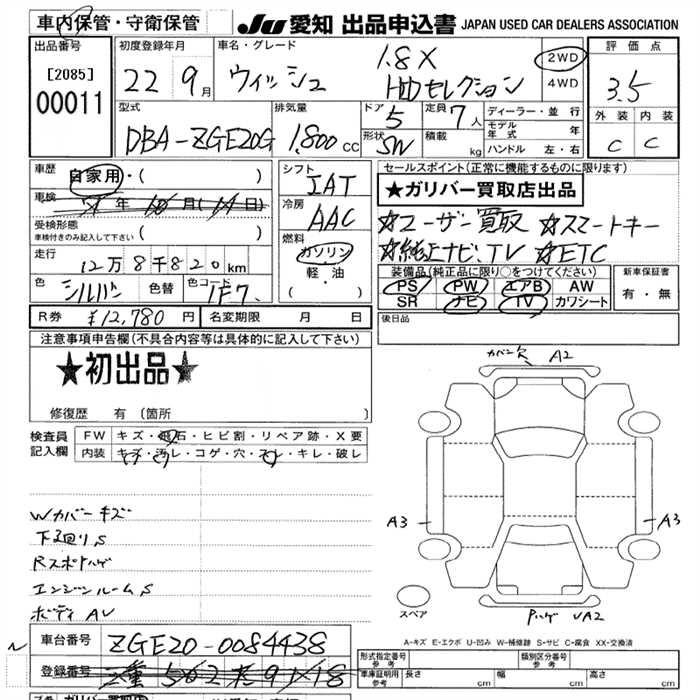 車内保管・守衛保管
JU 愛知 出品申込書 JAPAN USED CAR DEALERS ASSOCIATION
出品番号
[2085]
00011
初度登録年月
22 9月
車名・グレード
ウィッシュ
1.8X
HIDセレクション
2WD
4WD
評価点
3.5
外装 内装
C C
型式
DBA-ZGE20G
排気量
1,800cc
ドア
5
形状
SW
定員 7人
積載 kg
ディーラー・並行
モデル年式 年
ハンドル 左・右
車歴 自家用・( )
車検 年 月( 日)
受検形態
車検付きのみ記入して下さい ( )
走行
12万8千820km
色 シルバー 色替 色コード 1F7
シフト
IAT
冷房
AAC
燃料
ガソリン
・軽・油
( )
セールスポイント(正常に機能するものに限ります)
★ガリバー買取店出品
☆ユーザー買取 ☆スマートキー
☆純正ナビ、TV ☆ETC
装備品(純正品に限り○をつけてください)
PS PW エアB AW
SR ナビ TV カワシート
新車保証書
有・無
R券 ¥12,780円 名変期限 月 日
後日品
注意事項申告欄(不具合内容等は具体的に記入して下さい)
★初出品★
修復歴 有(箇所 )
検査員記入欄
FW キズ・飛石・ヒビ割・リペア跡・X要
内装 キズ・汚レ・コゲ・穴・スレ・キレ・破レ
Wカバーキズ
下廻りS
Rスポイハゲ
エンジンルームS
ボディAU
カバー欠 A2
A3
A3
スペア
A2
A-キズ E-エクボ U-凹み W-補修跡 S-サビ C-腐食 XX-交換済
車台番号 ZGE20-0084438
登録番号
形式指定番号
参考
類別区分番号
参考
車庫証明用
参考
長さ cm
幅 cm
高さ cm